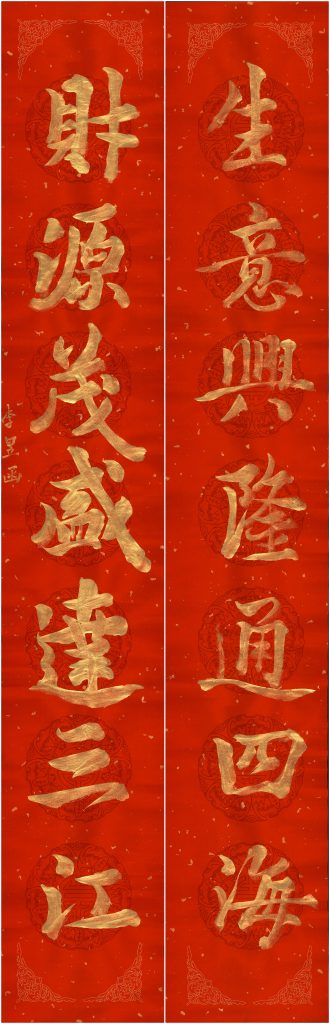 生意興隆通四海
財源茂盛達三江
李昱函